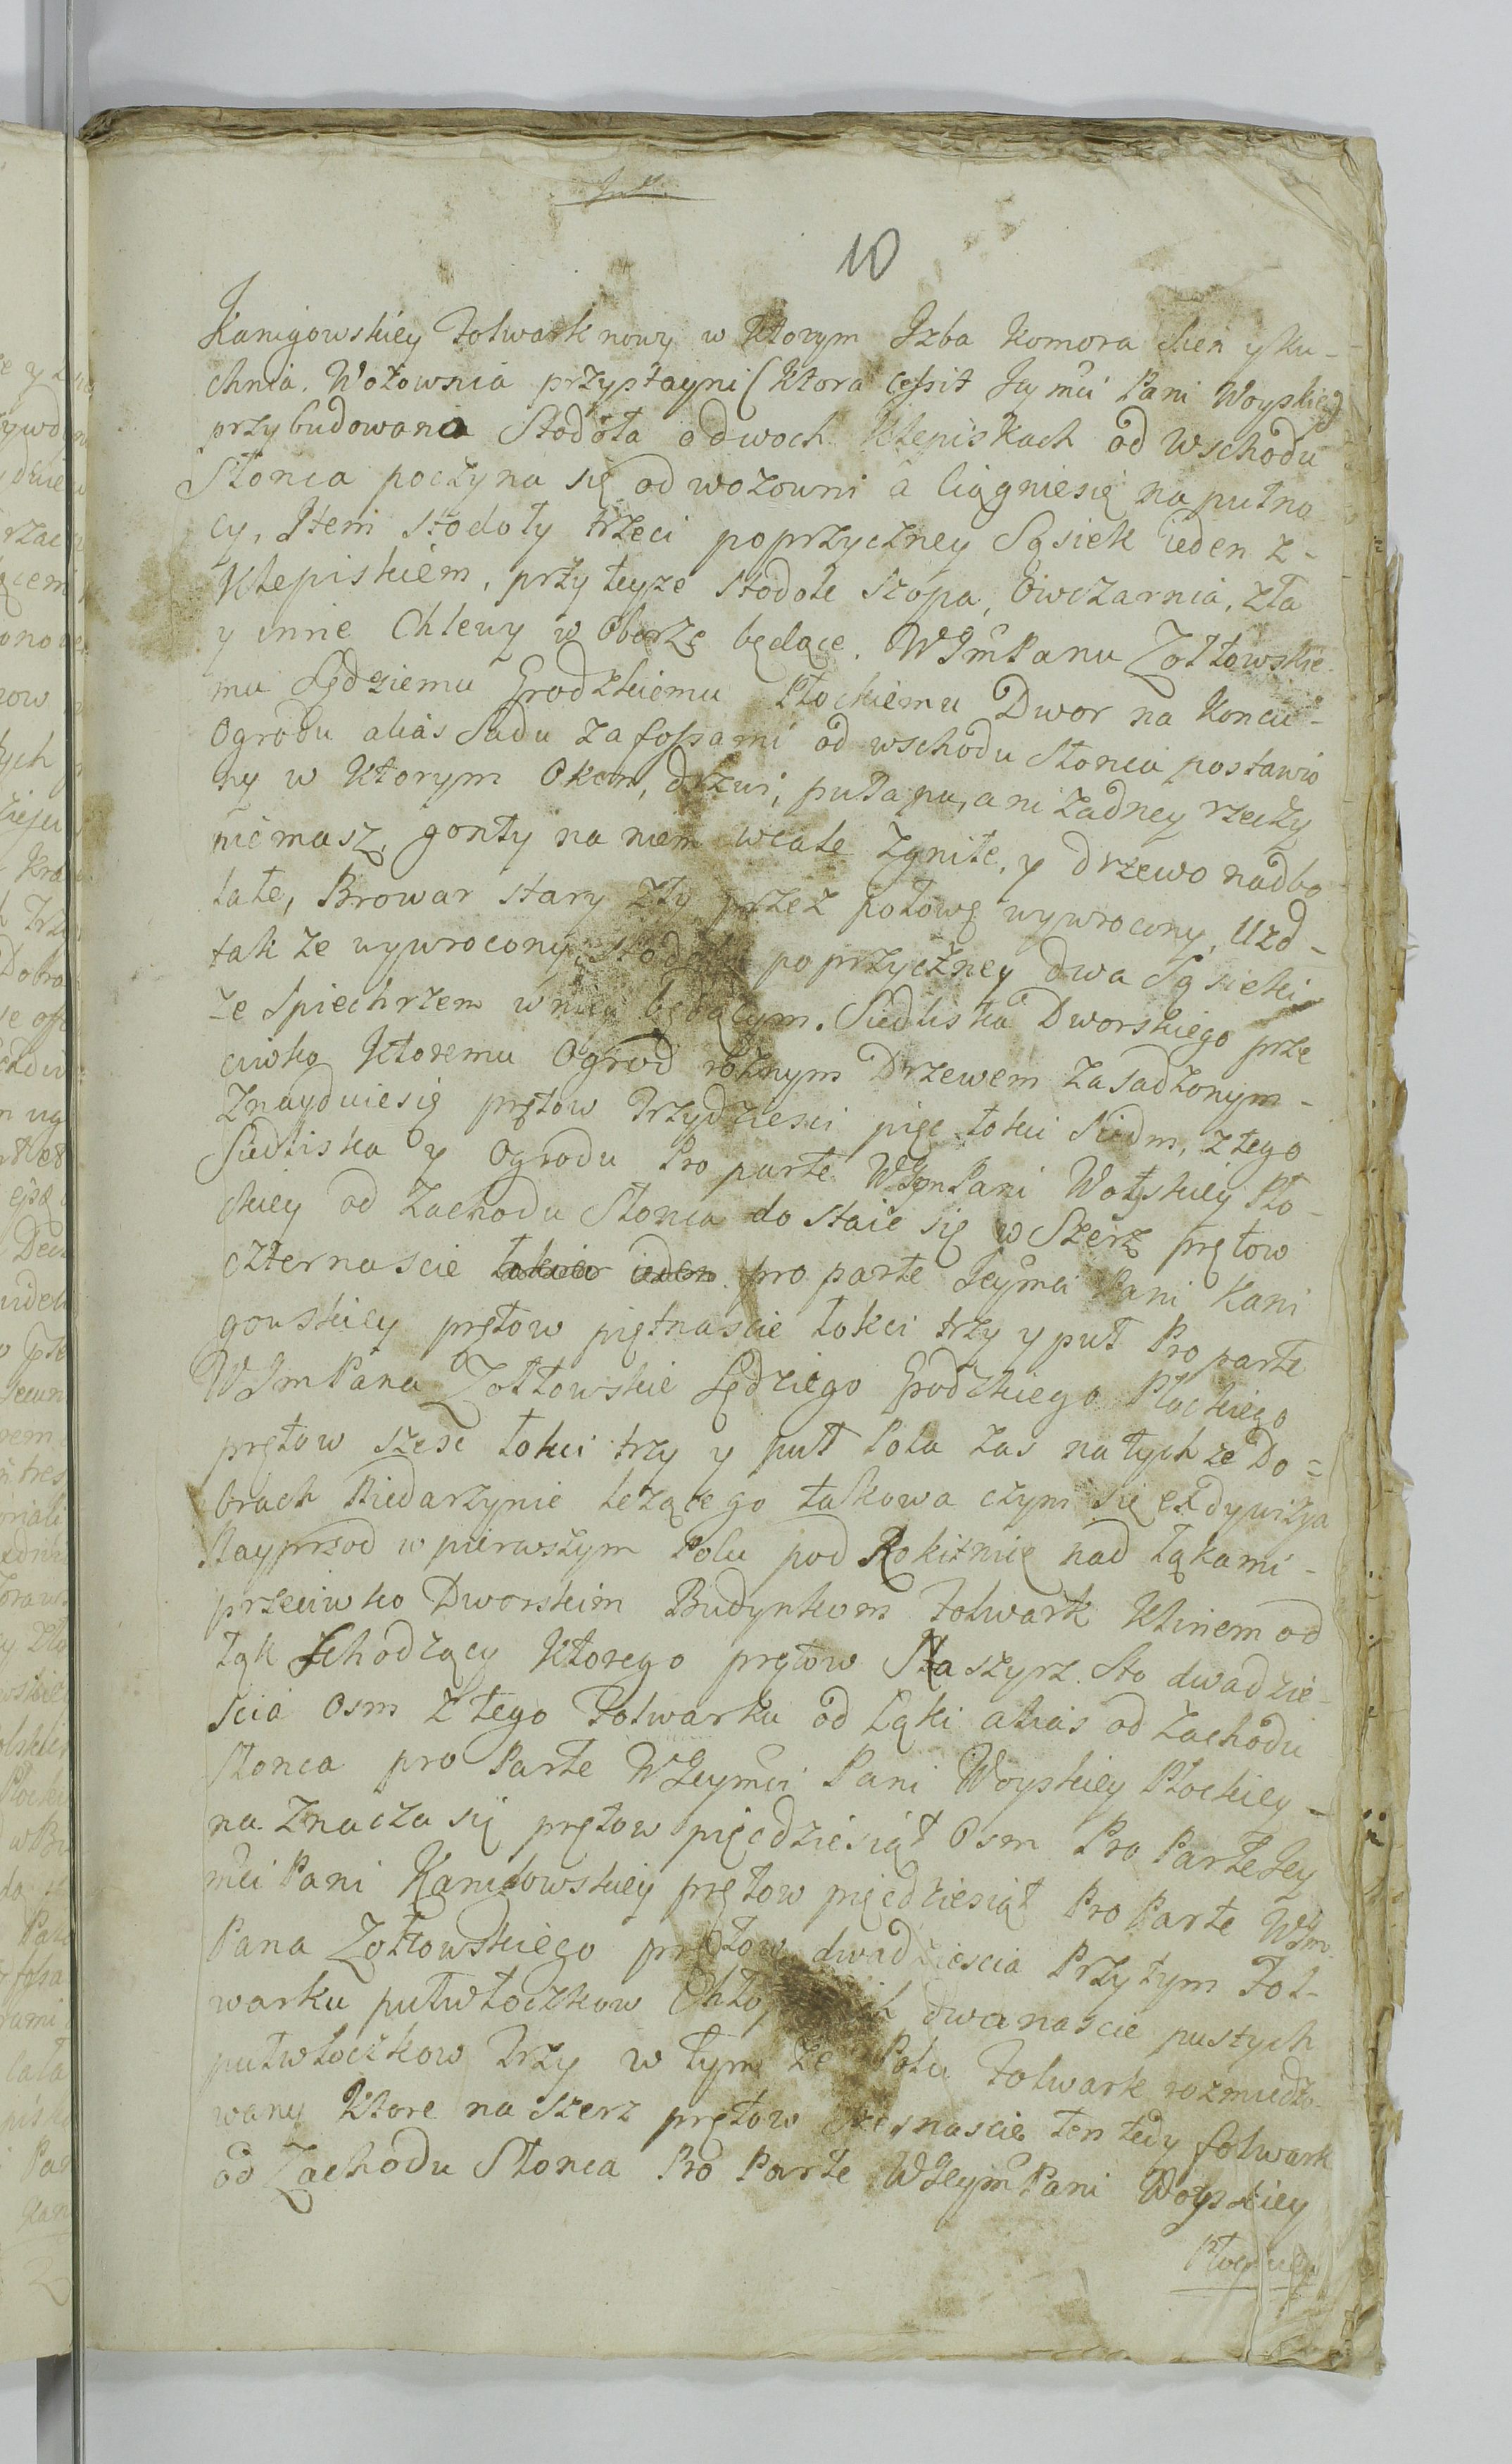 10
Kanigowskiey folwark nowy w ktorym Jzba komora sien y ku-
chnia. Wozownia przystayni (ktora cessit Jeymci Pani Woyskiey)
przybudowana Stodoła o dwoch klepiskach od wschodu
Słonca poczyna się od wozowni a ciągniesię na pułno
cy, Jtem stodoły trzeci poprzyczney Sąsiek ieden z-
Klepiskiem, przy teyze stodole szopa, Owczarnia, zła
y inne Chlewy w Oborze będące. WJmPanu Zołtowskie-
mu Sędziemu Grodzkiemu Płockiemu Dwor na koncu-
Ogrodu alias Sadu za fossami od wschodu Słonca postawio
ny w ktorym Okien, drzwi, pułapu, ani żadney rzeczy
niemasz, gonty na niem wcale zgniłe, y drzewo nadbo
lałe, Browar stary zły przez połowę wywrocony, Uzd-
tak ze wywrocony, stodoły poprzyczney dwa Sąsieki
ze Spiechrzem w niey będącym. Siedliska Dworskiego prze
ciwko ktoremu Ogrod roznym Drzewem zasadzonym-
Znayduiesię prętow trzydziesci pięc łokci Siedm, z tego
Siedliska y Ogrodu Pro parte WJmPani Woyskiey Pło-
ckiey od Zachodu Słonca dostaie się w Szerz prętow
czternascie łokiec ieden pro parte Jeymci Pani Kani
gowskiey prętow piętnascie łokci trzy y puł Pro parte
WJmPana Zołtowskie Sędziego Grodzkiego Płockiego
prętow szesc łokci trzy y puł Pola zas na tych ze Do=
brach Niedarzynie lezącego takowa czym się exdywizya
Nayprzod w pierwszym Polu pod Rokitnię nad łąkami-
przeciwko Dworskim Budynkom folwark klinem od
łąk schodzący ktorego prętow Na szyrz. Sto dwadzie-
scia Osm z tego folwarku od Łąki alias od zachodu
Słonca pro Parte WJeymci Pani Woyskiey Płockiey-
na znacza się prętow pięcdziesiąt Osm Pro Parte Jey
mci Pani Kanigowskiey prętow pięcdziesiąt Pro Parte WJm
Pana Zołtowskiego prętow dwadziescia Przy tym fol-
warku pułwłoczkow dwanascie pustych
pułwłoczkow trzy w tym ze Polu folwark rozmiedzo-
wany ktore na szerz prętow szesnascie ten tedy folwark
od Zachodu Słonca Pro Parte WJeymPani Woyskiey
Płockiey